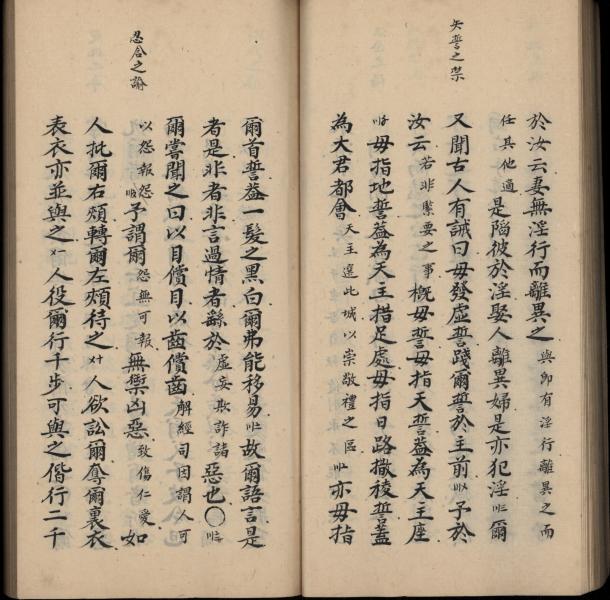 矢誓之禁
於汝云妻無淫行而離異之與卽有淫行離異之而
任其他適是陷彼於淫娶人離異婦是亦犯淫爾
又聞古人有誡曰毋發虛誓踐爾誓於主前予於
汝云若非緊要之事概毋誓毋指天誓葢為天主座
毋指地誓葢為天主措足處毋指日路撒稜誓蓋
為大君都會天主選此城以崇敬禮之區亦毋指
忍含之諭
爾首誓葢一髮之黑白爾弗能移易故爾語言是
者是非者非言過情者繇於虛妄欺詐諸惡也〇
爾嘗聞之曰以目償目以齒償齒解經司因謂人可
以怨報怨予謂爾怨無可報無禦凶惡致傷仁愛如
人批爾右頰轉爾左頰待之人欲訟爾奪爾裏衣
表衣亦並與之人役爾行千步可與之偕行二千